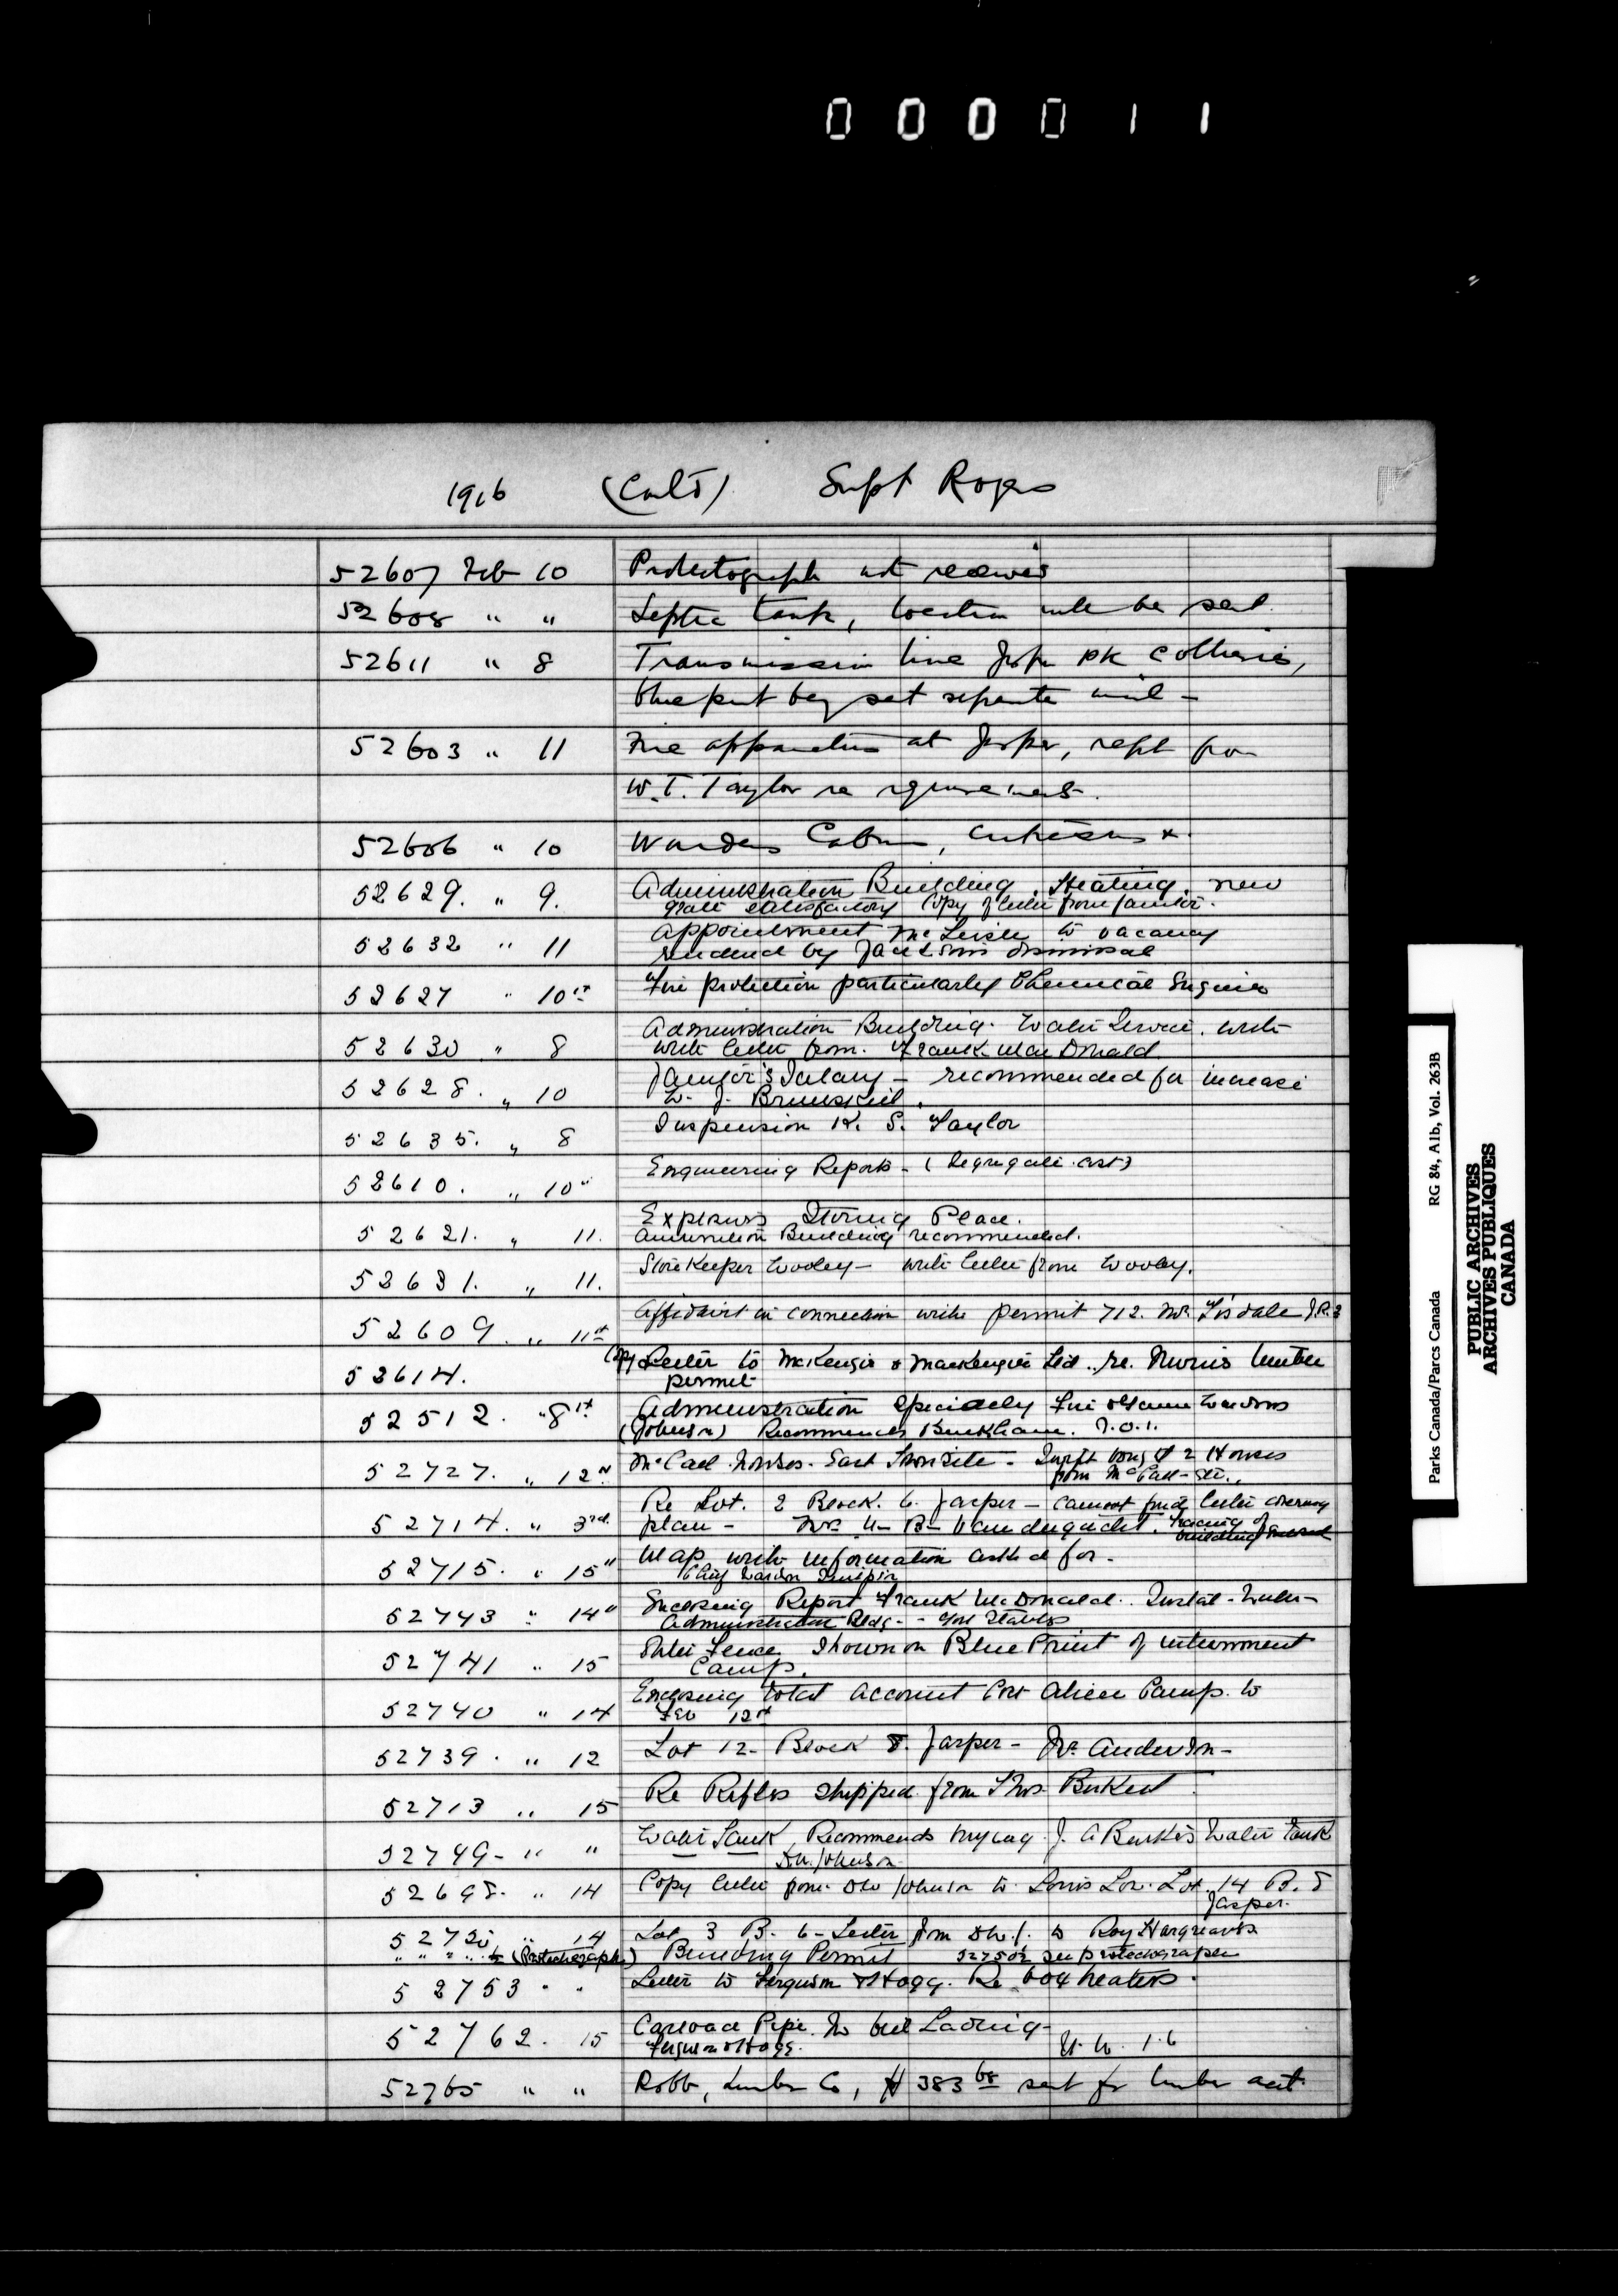 000011
1916 (Con'td) Supt Rogers
52607 Feb 10 Protectograph not received
52608 " " Septic tank, location will be sent
52611 " 8 Transmission line Jasper Pk Collieries,
blueprint being sent separate mail -
52603 " 11 Fire apparatus at Jasper, rept from
W.T. Taylor re requirements.
52606 " 10 Wardens Cabins,
52629. " 9. Administration Building. Heating. new
grate satisfactory Copy of letter from janitor.
52632 " 11 Appointment to vacancy
rendered by Jacksons dismissal
52627 " 10th Fire protection particularly Chemical Engines
52630 " 8 Administration Building. Water Service. with
with letter from. Frank MacDonald.
52628. " 10 Janitor's Salary - recommended for increase
W. J. Brunskill.
52635. " 8 Suspension K. S. Taylor
52610. " 10" Engineering Reports - (Segregate cost)
52621. " 11. Explosives Storing Place.
Ammunition Building recommended.
52631. " 11. Storekeeper Wooley - with letter from Wooley.
52609. " 11th Affidavit in connection with permit 712. Mr. Tisdale
52614. Copy Letter to McKenzie & MacKenzie Ltd. re. timber
permit
52512. " 8th Administration Specially Fire & Game Wardens
(Johnson) Recommends
52727. " 12" McCall Horses. East - Supt 2 Horses
from McCall
52714. " 3rd. Re Lot. 2 Block. 6. Jasper - cannot find letter covering
plan - tracing of
building
52715. " 15" Map with information asked for -
Chief Warden
52743 " 14" Enclosing Report Frank McDonald. Install - Water -
Administration Bldg. - Stables
52741 " 15 Fence Shown on Blue Print of internment
Camp.
52740 " 14 Enclosing total account Cost Alien Camp. to
Feb 12th
52739. " 12 Lot 12 - Block 8. Jasper - Mr. Anderson -
52713 " 15 Re Rifles shipped from Thos.
52749 - " " Water Tank, Recommends buying J. A Burke's Water Tank
Johnson
52698. " 14 Copy letter from Johnson to Louis Lot 14 B. 8
Jasper.
52750 " 14 Lot 3 B. 6 - Letter from to Roy Hargreaves
" " " " (Protectograph) Building Permit 52750½ see protectographer
52753 " " Letter to Ferguson & Hogg. Re box heaters.
52762. 15 Carload Pipe. No bill Lading -
Ferguson & Hogg.
52765 " " Robb, Lumber Co, # 383 68 sent for lumber acct
Parks Canada/Parcs Canada RG 84, A1b, Vol. 263B
PUBLIC ARCHIVES
ARCHIVES PUBLIQUES
CANADA